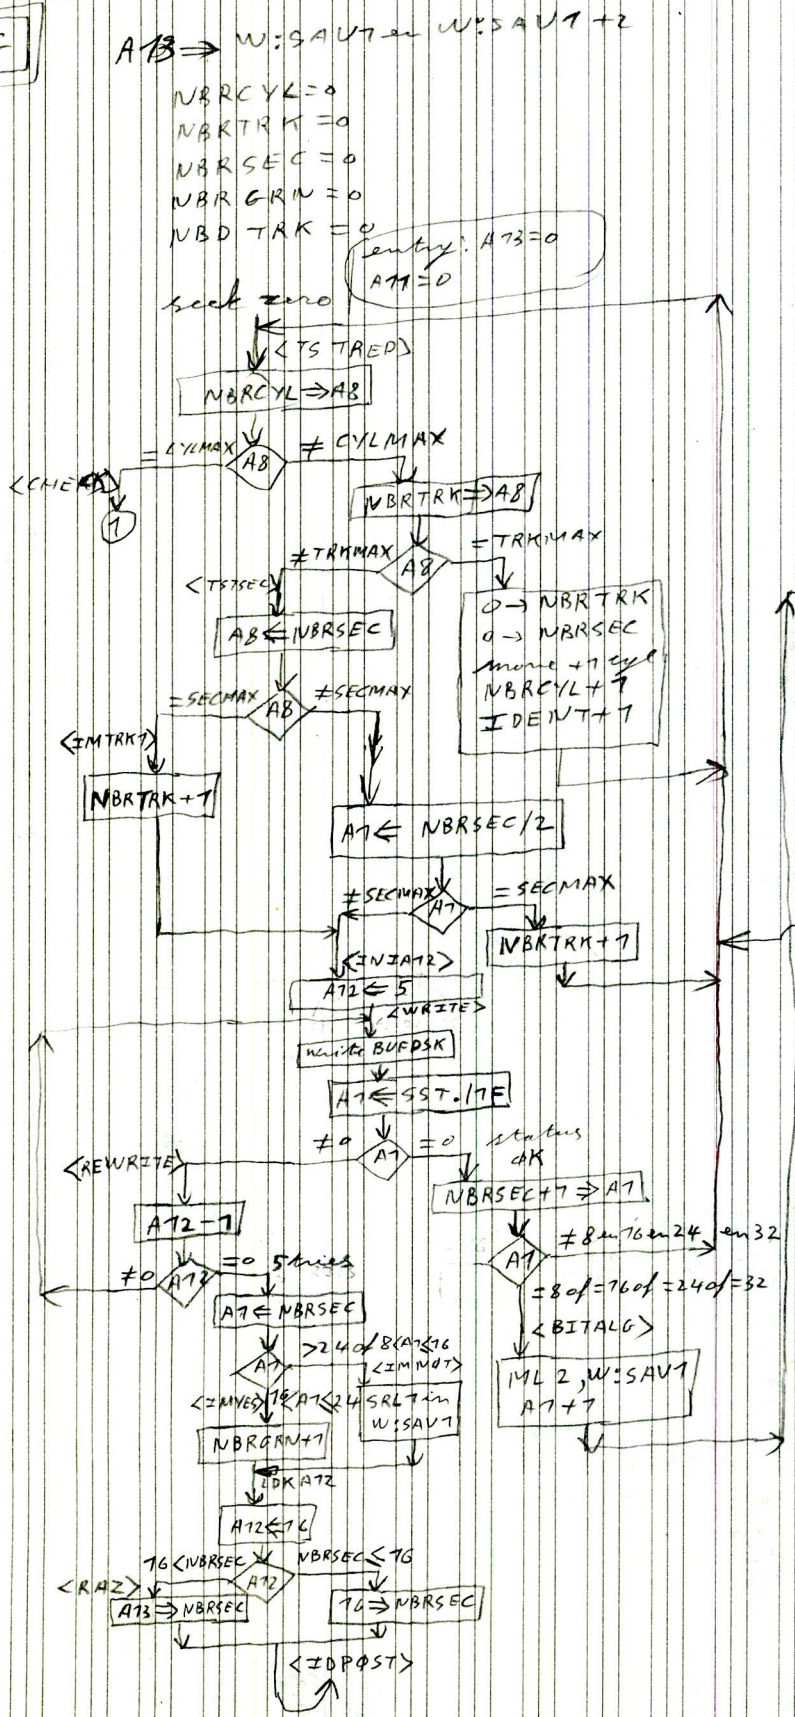 A13 ⇒ W:SAV1 en W:SAV1+2
NBRCYL=0
NBRTRK=0
NBRSEC=0
NBRGRN=0
NBDTRK=0
entry: A13=0
A11=0
seek zero
<TSTRED>
NBRCYL⇒A8
=CYLMAX A8 ≠CYLMAX
1
NBRTRK⇒A8
≠TRKMAX A8 =TRKMAX
<TSTSEC>
0→NBRTRK
0→NBRSEC
move +1 cyl
NBRCYL+1
IDENT+1
A8⇐NBRSEC
=SECMAX A8 ≠SECMAX
<IMTRK1>
NBRTRK+1
A1⇐ NBRSEC/2
≠SECMAX A1 =SECMAX
NBRTRK+1
<INIA12>
A12⇐5
<WRITE>
write BUFDSK
A1⇐SST./1F
≠0 A1 =0 status
OK
<REWRITE>
NBRSEC+1⇒A1
A12-1
A1 ≠8 en 16 en 24 en 32
≠0 A12 =0 5 tries
=8 of =16 of =24 of =32
A1⇐NBRSEC
<BITALG>
A1 >24 of 8<A1≤16
<IMNOT>
<IMYES> 16<A1≤24
SRL1 in
W:SAV1
ML 2,W:SAV1
A1+1
NBRGRN+1
LDKA12
A12⇐16
16<NBRSEC A12 NBRSEC≤16
<RAZ>
A13⇒NBRSEC
16⇒NBRSEC
<IDPOST>